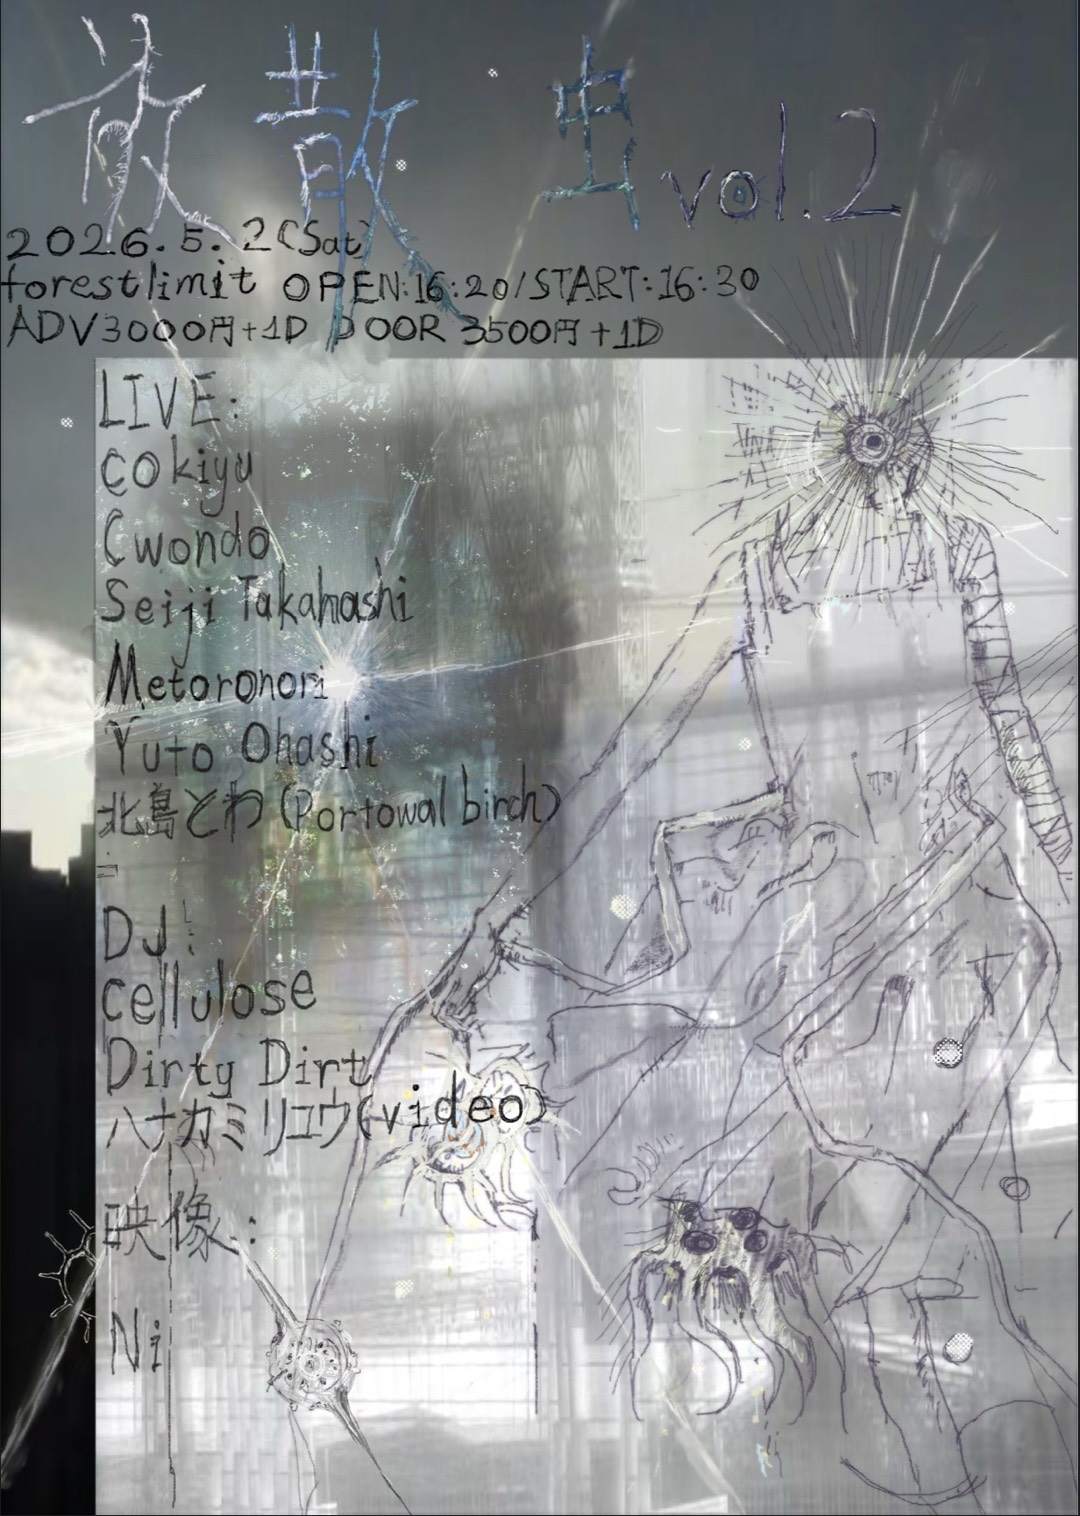 放散虫 vol.2
2026.5.2(Sat)
forestlimit OPEN:16:20/START:16:30
ADV3000円+1D DOOR 3500円+1D
LIVE:
cokiyu
Cwondo
Seiji Takahashi
Metoronori
Yuto Ohashi
北島とわ(Portowal birch)
DJ:
cellulose
Dirty Dirt
ハナカミリュウ(video)
映像:
Ni